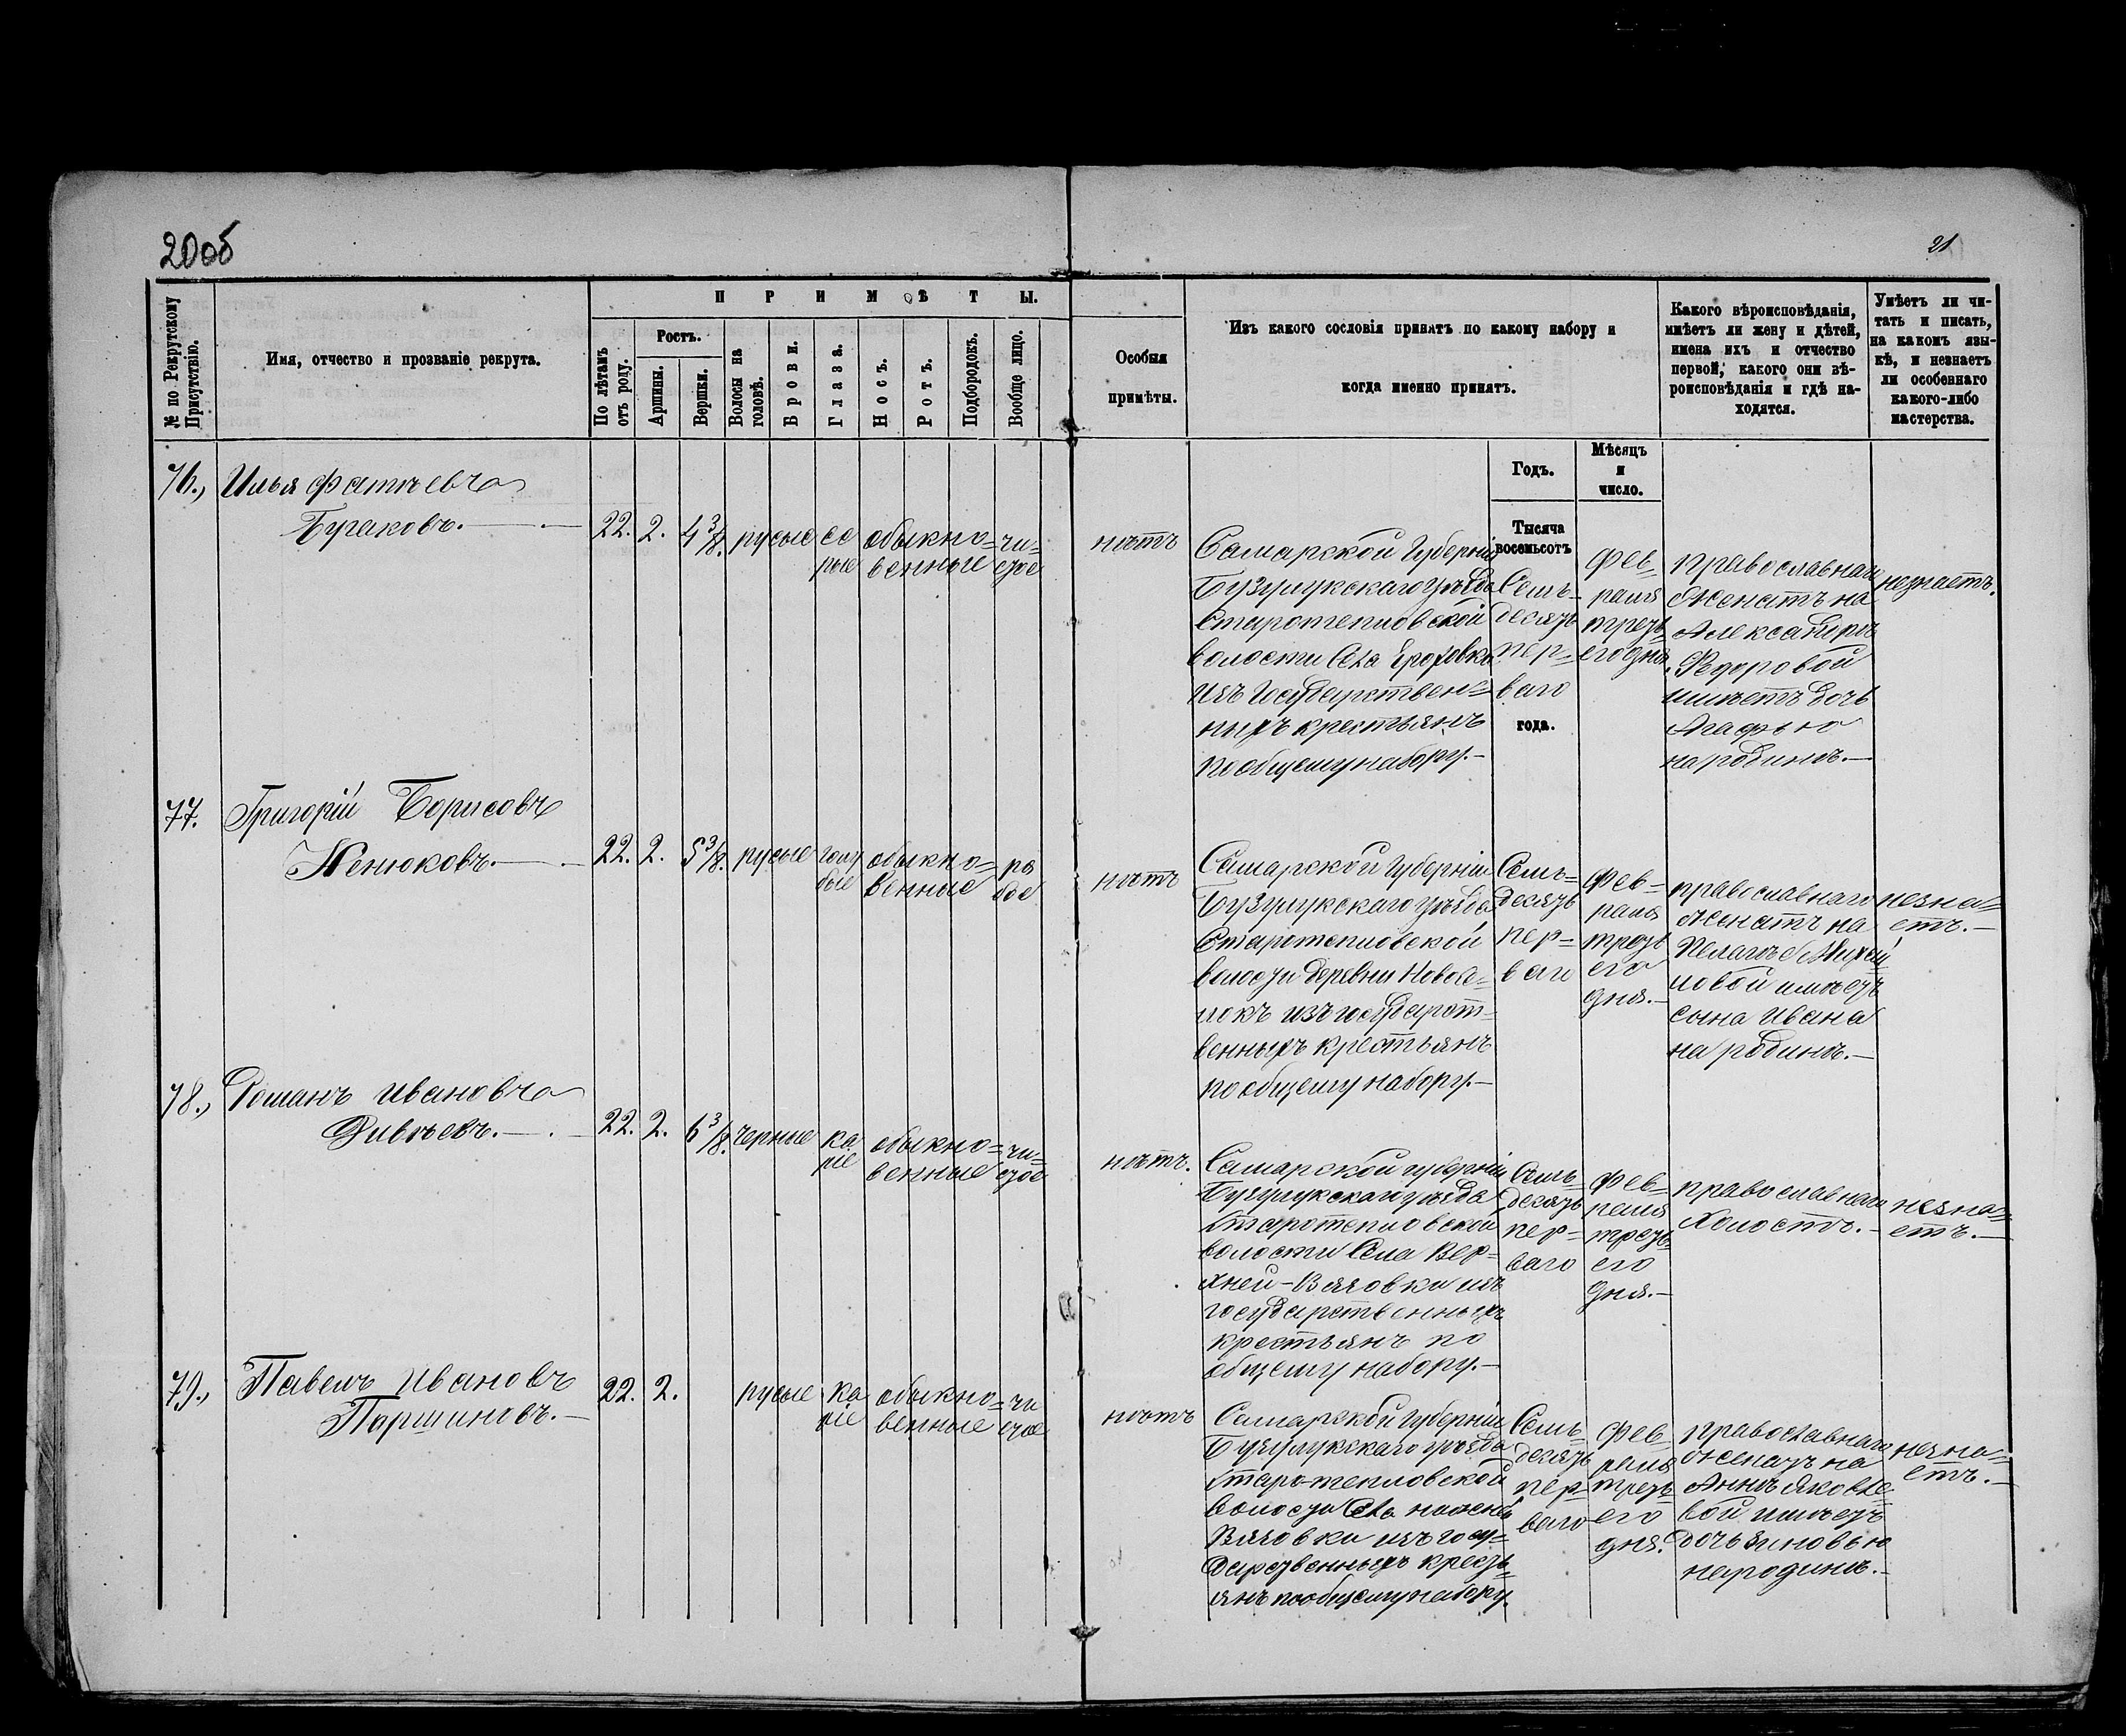 20об
21
№ по Рекрутскому
Присутствію.
Имя, отчество и прозваніе рекрута.
ПРИМѢТЫ.
По лѣтамъ
отъ роду.
Ростъ.
Аршины.
Вершки.
Волосы на
головѣ.
Брови.
Глаза.
Носъ.
Ротъ.
Подбородокъ.
Вообще лицо.
Особыя
примѣты.
Изъ какого сословія принятъ по какому набору и
когда именно принятъ.
Какого вѣроисповѣданія,
имѣетъ ли жену и дѣтей,
имена ихъ и отчество
первой, какого они вѣ-
роисповѣданія и гдѣ на-
ходятся.
Умѣетъ ли чи-
тать и писать,
на какомъ язы-
кѣ, и незнаетъ
ли особеннаго
какого-либо
мастерства.
Годъ.
Мѣсяцъ
и
число.
76., Илья Фатѣевъ
Бураковъ.
22. 2. 4 3/8. русые
се
рые
обыкно=
венные
чи=
стое
нѣтъ
Самарской Губерніи
Бузулукскаго уѣзда
Старотепловской
волости Села Ероховки
изъ Государствен=
ныхъ крестьянъ
по общему набору.-
Тысяча
восемьсотъ
Семь-
десятъ
пер=
ваго
года.
Фев=
раля
треть
его дня.
православнаго
Женатъ на
Александрѣ
Федоровой
имѣетъ дочь
Агафью
на родинѣ.-
незнаетъ.
77. Григорій Борисовъ
Женюковъ.
22. 2. 5 3/8. русые
голу
бые
обыкно=
венные
ря
бое
нѣтъ
Самарской Губерніи
Бузулукскаго уѣзда
Старотепловской
волости деревни Новосе=
локъ изъ государст-
венныхъ крестьянъ
по общему набору.-
Семь=
десятъ
пер=
ваго
Фев=
раля
треть
его
дня.-
православнаго
женатъ на
Пелагѣе Михай
ловой имѣетъ
сына Ивана
на родинѣ.-
незна=
етъ.-
78., Романъ Ивановъ
Дивѣевъ.
22. 2. 6 3/8. черные
ка
ріе
обыкно=
венные
чи=
стое
нѣтъ.
Самарской губерніи
Бузулукскаго уѣзда
Старотепловской
волости Села Вер=
хней-Вязовки изъ
государственныхъ
крестьянъ по
общему набору.-
Семь-
десятъ
пер=
ваго
Фев=
раля
треть
его
дня.-
православнаго
Холостъ.-
незна=
етъ.-
79., Павелъ Ивановъ
Паршиновъ.-
22. 2. русые
ка
ріе
обыкно=
венные
чи
стое
нѣтъ
Самарской Губерніи
Бузулукскаго уѣзда
Старо-тепловской
волости Села нижней
Вязовки изъ госу=
дарственныхъ кресть
янъ по общему набору.
Семь-
десятъ
пер-
ваго
Фев-
раля
треть
его
дня.
Православнаго
женатъ на
Аннѣ Яковле-
вой имѣетъ
дочь Зиновью
народинѣ.-
незна=
етъ.-